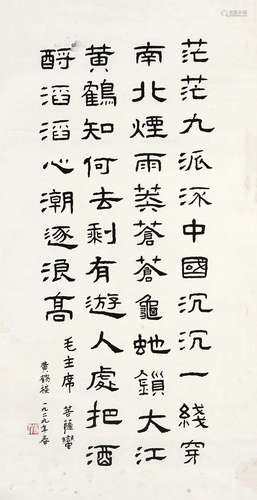 茫茫九派流中國沉沉一綫穿
南北煙雨莽蒼蒼龜蛇鎖大江
黃鶴知何去剩有遊人處把酒
酹滔滔心潮逐浪高
毛主席 菩薩蠻
黃